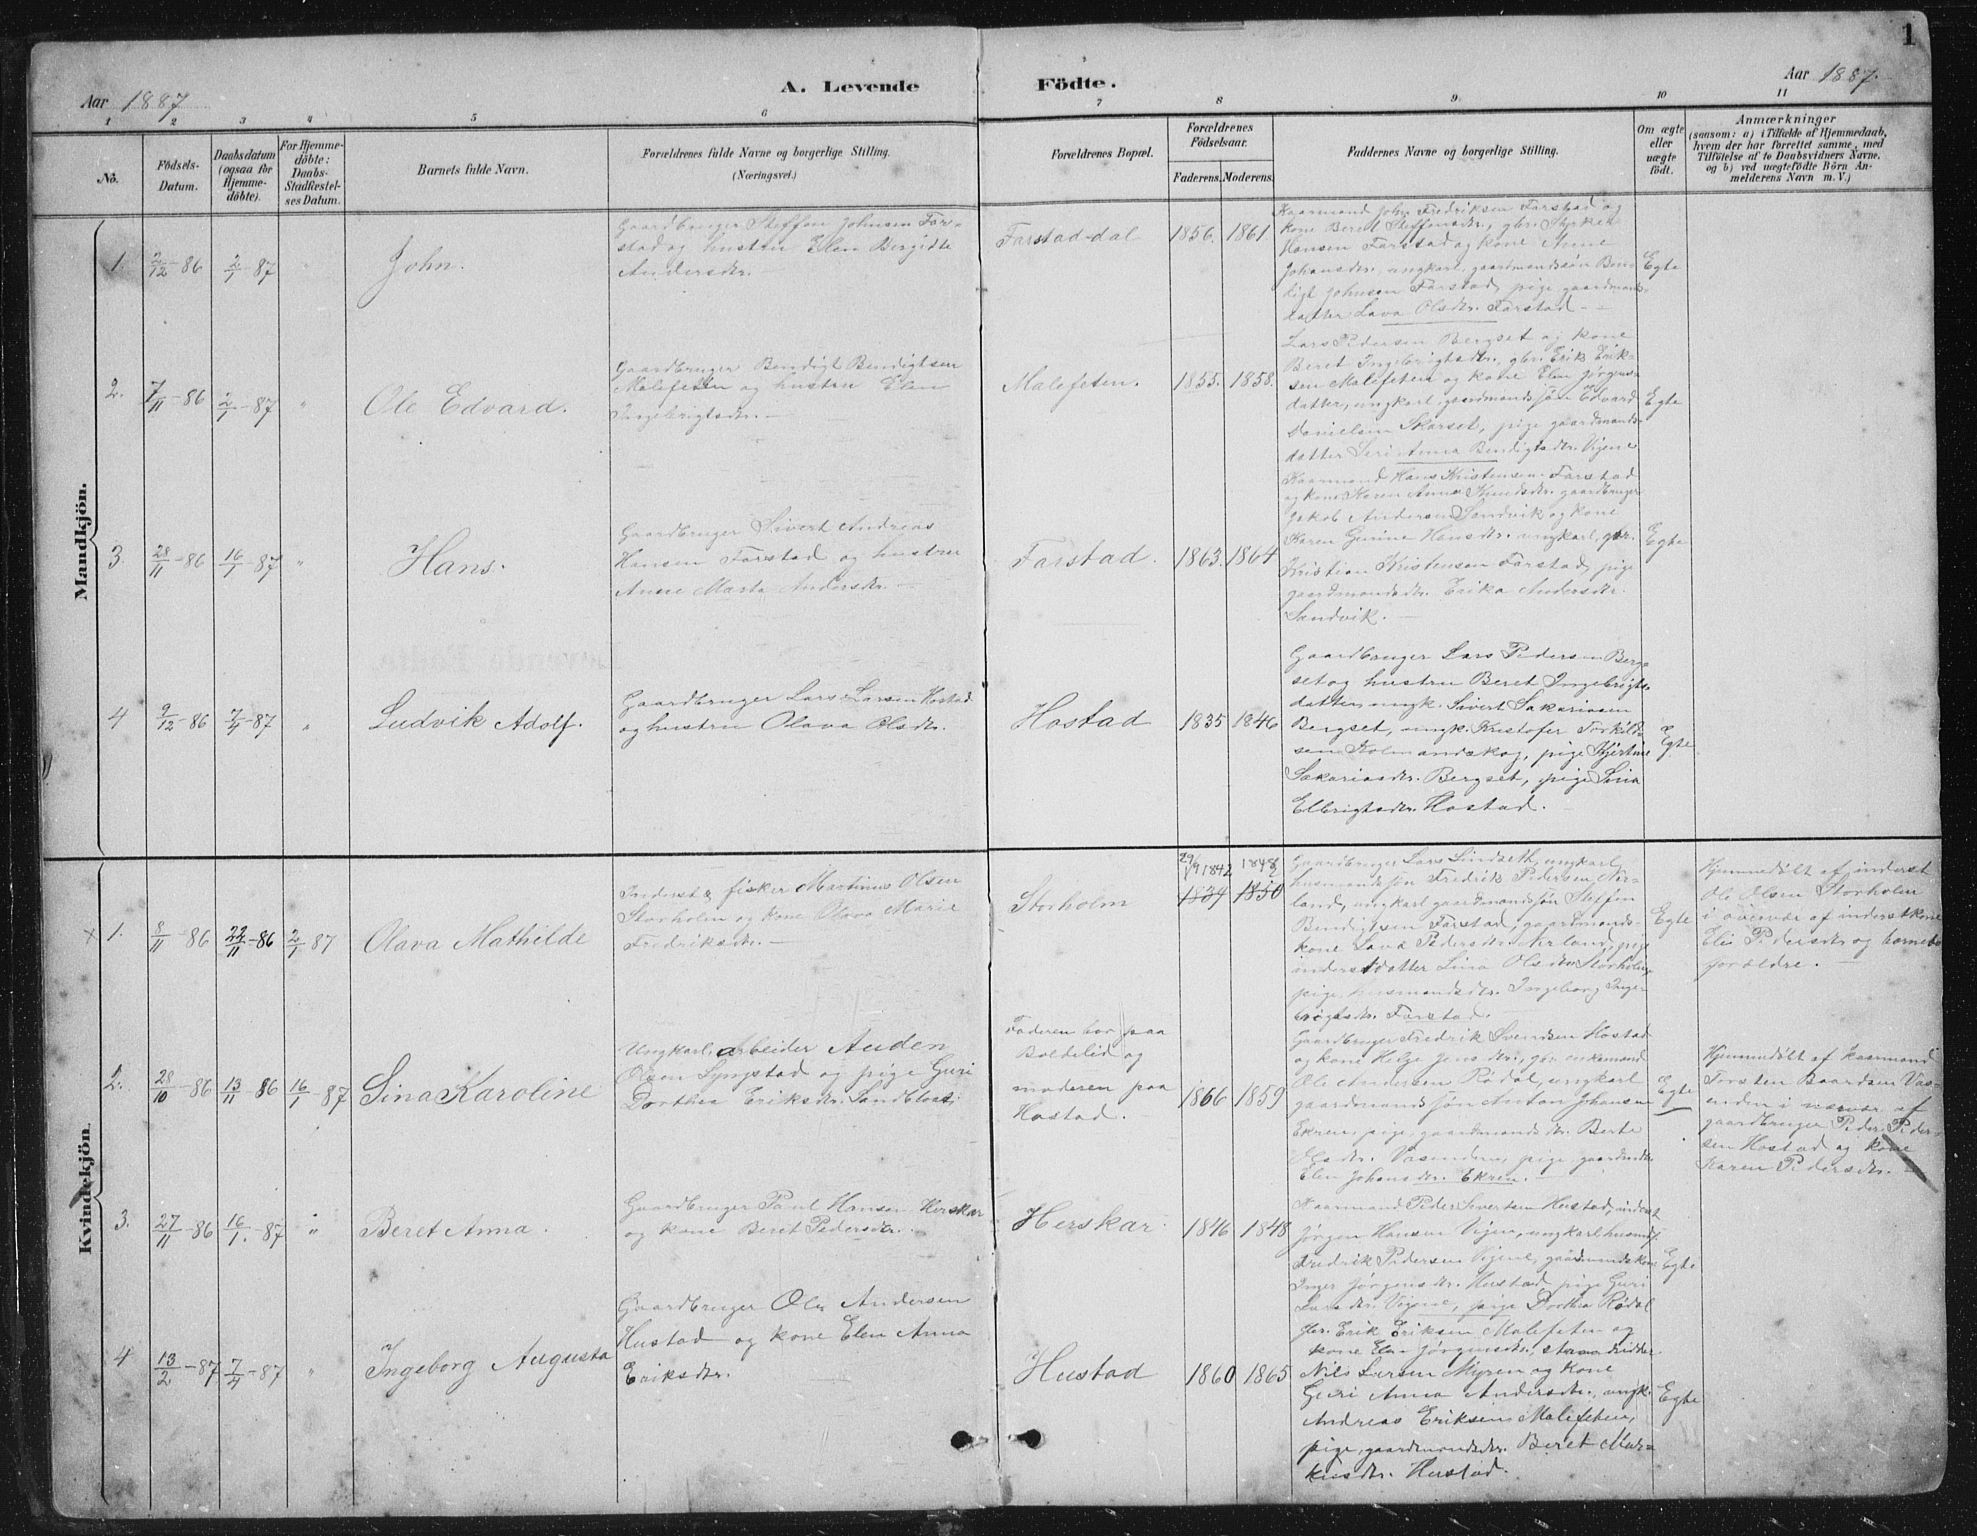 1
Aar 1887
A. Levende
Födte.
Aar 1887.
1 2 3 4 5 6 7 8 9 10 11
No.
Födsels-
Datum.
Daabsdatum
(ogsaa for
Hjemme-
döbte).
For Hjemme-
döbte:
Daabs-
Stadfæstel-
ses Datum.
Barnets fulde Navn.
Forældrenes fulde Navne og borgerlige Stilling.
(Næringsvei.)
Forældrenes Bopæl.
Forældrenes
Födselsaar.
Faderens. Moderens.
Faddernes Navne og borgerlige Stilling.
Om ægte
eller
uægte
födt.
Anmærkninger
(saasom: a) i Tilfælde af Hjemmedaab,
hvem der har forrettet samme, med
Tilföielse af to Daabsvidners Navne,
og b) ved uægtefödte Börn An-
melderens Navn m. V.)
Mandkjön.
1. 2/12-86 2/1-87 " John.
Gaardbruger Steffen Johnsen Far-
stad og hustru Elen Bergitte
Andersdtr.
Farstad-dal 1856. 1861
Kaarmand John Fredriksen Farstad og
kone Beret Steffensdtr., gbr. Styrker
Hansen Farstad og kone Anne
Johansdtr., ungkarl, gaardmandssøn Ben-
digt Johnsen Farstad, pige gaardmands-
datter Lava Olsdtr. Farstad.
Egte
2. 7/11-86 2/1-87 " Ole Edvard.
Gaardbruger Bendigt Bendigtsen
Malefeten og hustru Elen
Ingebrigtsdtr.
Malefeten. 1855. 1858.
Lars Pedersen Bergset og kone
Beret Ingebrigtsdtr., gbr. Erik Erik-
sen Malefeten og kone Elen Jørgens-
datter, ungkarl, gaardmandssøn Edvard
Danielsen Skarset, pige gaardmands-
datter Seri Anna Bendigtsdtr. Vigene
Egte
3. 28/11-86 16/1-87 " Hans.
Gaardbruger Sivert Andreas
Hansen Farstad og hustru
Anne Marta Andersdtr.
Farstad. 1863. 1864
Kaarmand Hans Kristensen Farstad
og kone Karen Anna Knudsdtr. gaardbruger
Jakob Andersen Sandvik og kone
Karen Gurine Hansdtr. ungkarl, gbr.
Kristian Kristensen Farstad, pige
gaardmandsdtr. Erika Andersdtr.
Sandvik.
Egte
4 9/12-86 7/4-87 " Ludvik Adolf.
Gaardbruger Lars Larsen Hostad
og hustru Olava Olsdtr.
Hostad 1835 1846
Gaardbruger Lars Pedersen Berg-
set og hustru Beret Ingebrigts-
datter, ungk. Sivert Sakariasen
Bergset, ungk. Kristofer Torkild-
sen Kolmanskog, pige Kjerstine
Sakariasdtr. Bergset, pige Lina
Elbrigtsdtr. Hostad.
Egte
Kvindekjön.
x 1. 8/11-86 22/11-86 2/1-87 Olava Mathilde
Inderst & fisker Martinus Olsen
Storholm og kone Olava Marie
Fredriksdtr.
Storholm 29/9 1842 1848
1839 1850
Gaardbruger Lars Lindseth, ungkarl,
husmandssøn Fredrik Pedersen Ner-
land, ungkarl gaardmandssøn Steffen
Bendigtsen Farstad, gaardmands-
kone Lava Pedersdtr. Nerland, pige
inderstdatter Lina Olsdtr. Storholm,
pige, husmandsdtr. Ingeborg Inge-
brigtsdtr. Farstad.
Egte
Hjemmedøbt af inderst
Ole Olsen Storholm
i overvær af inderstkone
Eli Pedersdtr og barnets
forældre.
2. 28/10-86 13/11-86 16/1-87 Lina Karoline
Ungkarl, arbeider Auden
Olsen Lyngstad og pige Guri
Dorthea Eriksdtr. Sandblost.
Faderen bor paa
Boldelid og
moderen paa
Hostad.
1866 1859
Gaardbruger Fredrik Svendsen Hostad
og kone Helge Jensdtr., enkemand
Ole Andersen Rødal, ungkarl
gaardmandssøn Anton Johansen
Ekren, pige, gaardmandsdtr. Berte
Olsdtr. Vasenden, pige, gaardmdtr.
Elen Johansdtr. Ekren.
Egte
Hjemmedøbt af kaarmand
Torsten Baardsen Vas-
enden i nærvær af
gaardbruger Peder Peder-
sen Hostad og kone
Karen Pedersdtr.
3. 27/11-86 16/1-87 " Beret Anna.
Gaardbruger Paul Hansen Herskar
og kone Beret Pedersdtr.
Herskar 1846 1848
Kaarmand Peder Sivertsen Hustad, inderst
Jørgen Hansen Vigen, ungkarl husm.s.
Fredrik Pedersen Vigene, gaardmandskone
Inger Jørgensdtr. Hustad, pige Guri
Larsdtr. Vigene, pige Dorthea Rødal
Egte
4 13/2-87 7/4-87 " Ingeborg Augusta
Gaardbruger Ole Andersen
Hustad og kone Elen Anna
Eriksdtr.
Hustad 1860 1865
Gbr. Erik Eriksen Malefeten og
kone Elen Jørgensdtr.,
Nils Larsen Myren og kone
Guri Anna Andersdtr., ungk.
Andreas Eriksen Malefeten,
pige, gaardmandsdtr. Beret Mar-
kusdtr. Hustad.
Egte